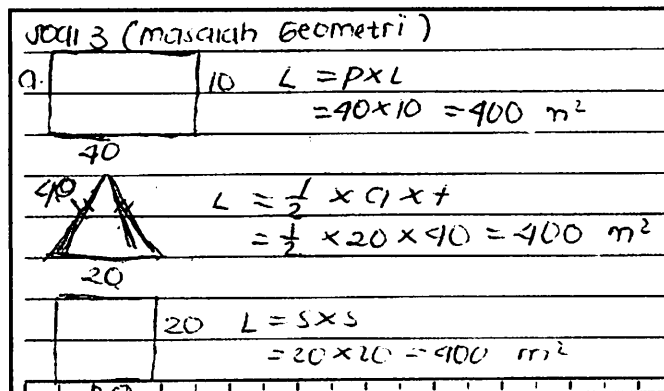 soal 3 (masalah Geometri)
a. 10 L = P×L
= 40×10 = 400 m²
40
40 L = 1/2 × a × t
= 1/2 × 20 × 40 = 400 m²
20
20 L = s×s
= 20×20 = 400 m²